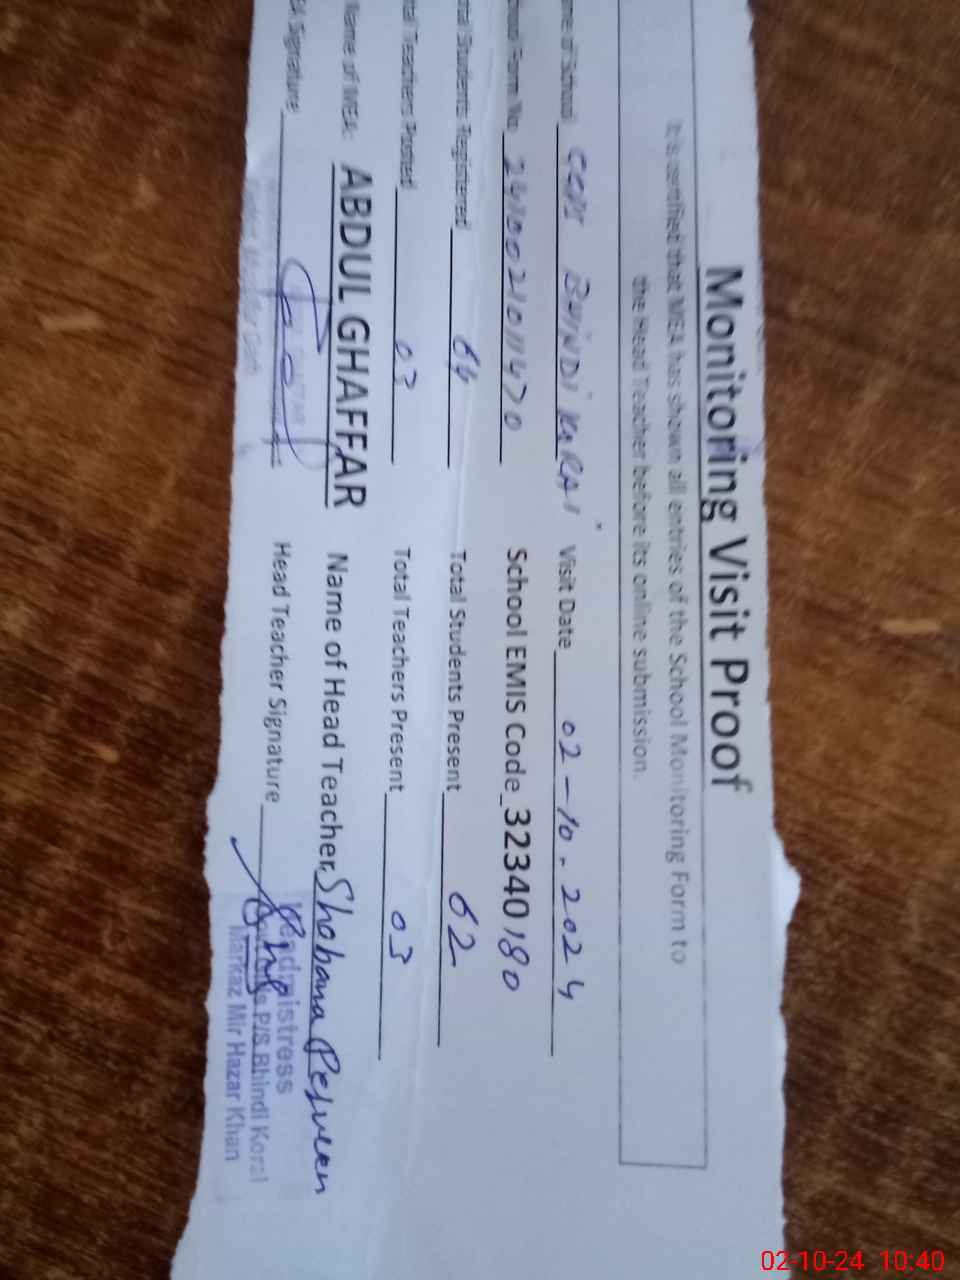 Monitoring Visit Proof
It is certified that MEA has shown all entries of the School Monitoring Form to
the Head Teacher before its online submission.
me of School BHINDI KORAI Visit Date 02-10-2024
Form No School EMIS Code 32340180
tal Students Registered 64 Total Students Present 62
tal Teachers Posted 03 Total Teachers Present 03
Name of MEA: ABDUL GHAFFAR Name of Head Teacher: Shobana Perveen
EA Signature Head Teacher Signature
Headmistress
P/S Bhindi Korai
Markaz Mir Hazar Khan
02-10-24 10:40